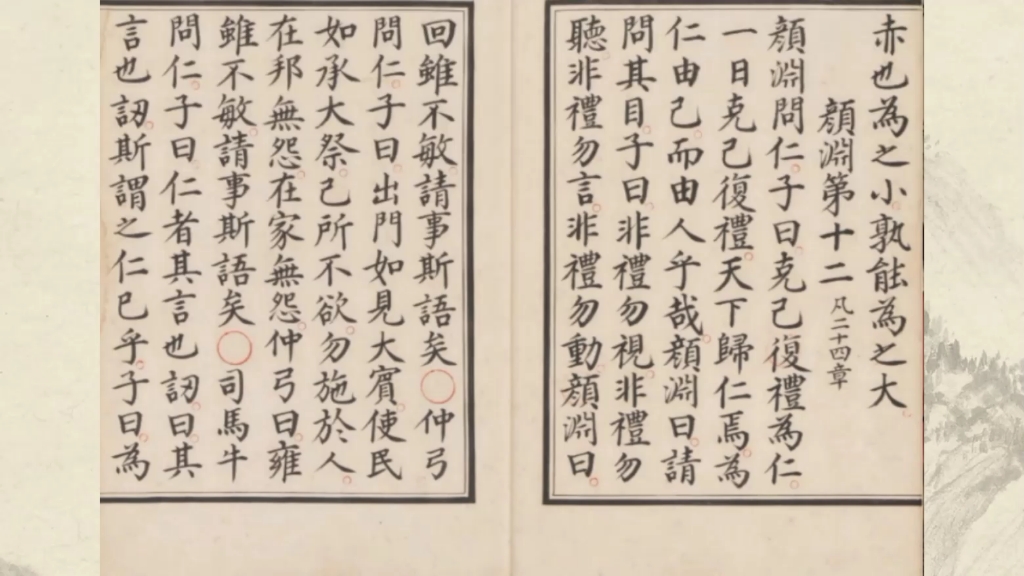 赤也為之小孰能為之大
顏淵第十二凡二十四章
顏淵問仁子曰克己復禮為仁
一日克己復禮天下歸仁焉為
仁由己而由人乎哉顏淵曰請
問其目子曰非禮勿視非禮勿
聽非禮勿言非禮勿動顏淵曰
回雖不敏請事斯語矣○仲弓
問仁子曰出門如見大賓使民
如承大祭己所不欲勿施於人
在邦無怨在家無怨仲弓曰雍
雖不敏請事斯語矣○司馬牛
問仁子曰仁者其言也訒曰其
言也訒斯謂之仁已乎子曰為